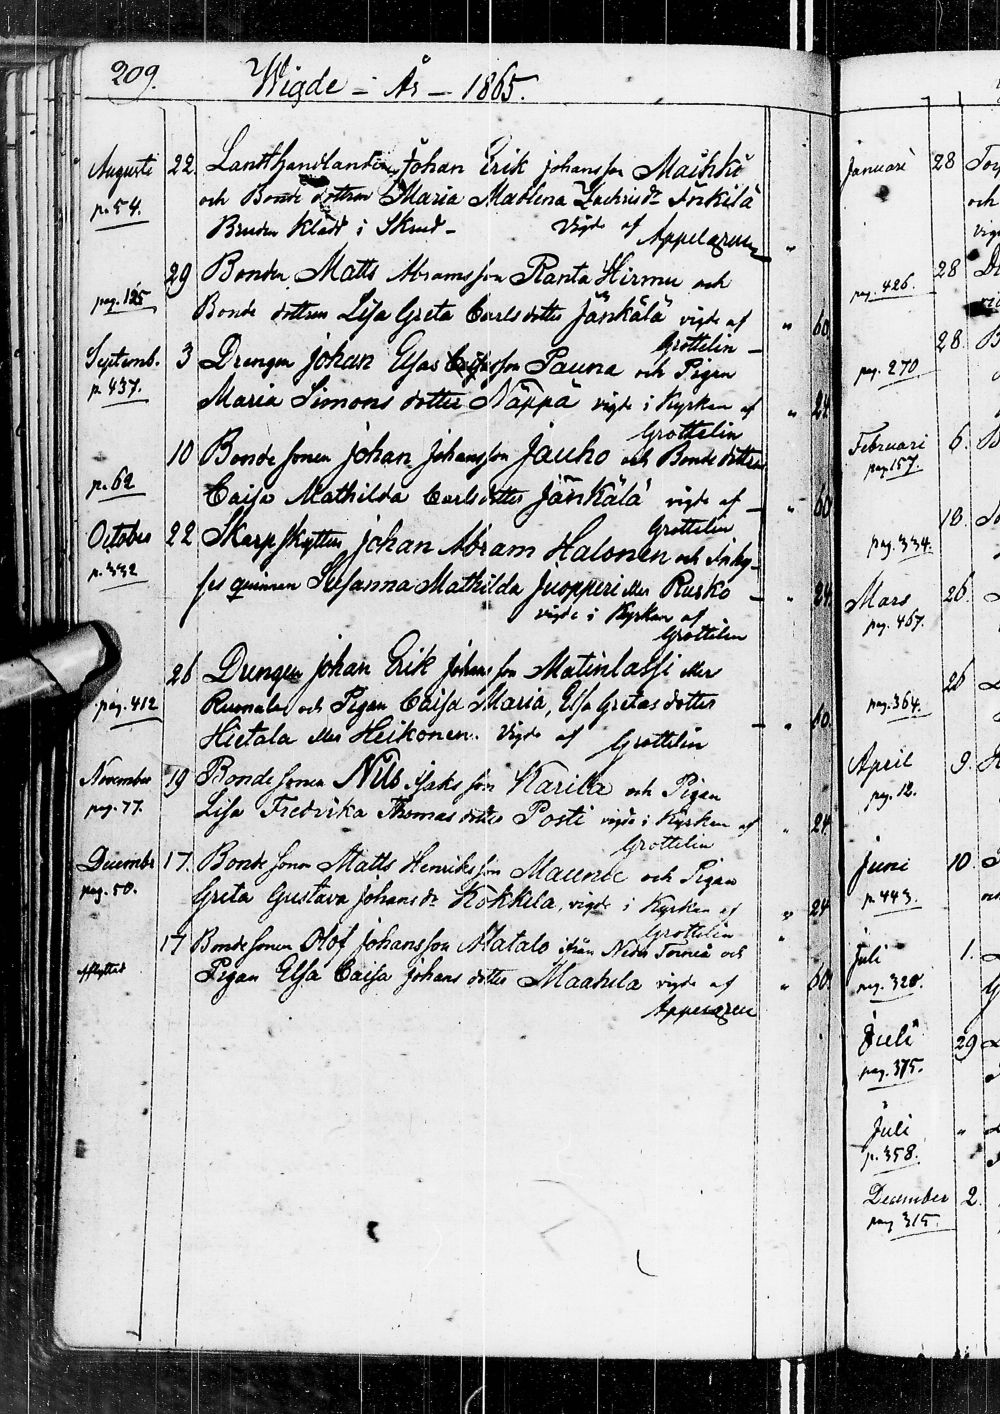 209.
Wigde - År - 1865.
Augusti 22. Landthandlanden Johan Erik Johansson Maikkö
p. 54. och Bonde dottren Maria Madlena Zachrisdr Inkilä
Bruden klädd i Skrud - vigde af Appelgren "
29 Bonden Matts Abramsson Ranta Hirmu och
pag. 125 Bonde dottren Lisa Greta Carls dotter Jänkälä vigde af " 60
Grottelin -
Septemb. 3 Drengen Johan Elias son Pauna och Pigan
p. 437. Maria Simons dotter Näppä vigde i Kyrkan af " 24
Grottelin
10 Bonde sonen Johan Johansson Jauho och Bonde dottren
p. 62 Caisa Mathilda Carlsdotter Jänkälä vigde af - " 60
Grottelin
October 22 Skarpskytten Johan Abram Halonen och Inhy-
p. 332 ses quinnan Susanna Mathilda Juopperi eller Rusko - " 24.
vigde i Kyrkan af
Grottelin
26 Drengen Johan Erik Johansson Matinlassi eller
pag. 412 Ruonala och Pigan Caisa Maria, Elsa Gretas dotter - " 60.
Hietala eller Heikonen. Vigde af Grottelin
November 19 Bonde sonen Nils Isaksson Karilla och Pigan
pag. 77. Lisa Fredrika Thomas dotter Posti vigde i Kyrkan af " 24
Grottelin
December 17. Bonde sonen Matts Henriksson Maunu och Pigan
pag. 50. Greta Gustava Johansdr Kokkila, vigde i Kyrkan af " 24
Grottelin "
17 Bondesonen Olof Johansson Matalo ifrån Neder Torneå och
Afflyttad Pigan Elsa Caisa Johans dotter Maahela vigde af " 60.
Appelgren
Januari 28
och
28
pag. 426.
28.
pag. 270
Februari 6.
pag. 157.
18.
pag. 334.
Mars 26.
pag. 467.
26
pag. 364.
April 9.
pag. 12.
Juni 10
p. 443.
Juli 1.
pag. 320.
Juli 29
pag. 375.
Juli "
p. 358.
December 2.
pag 315.